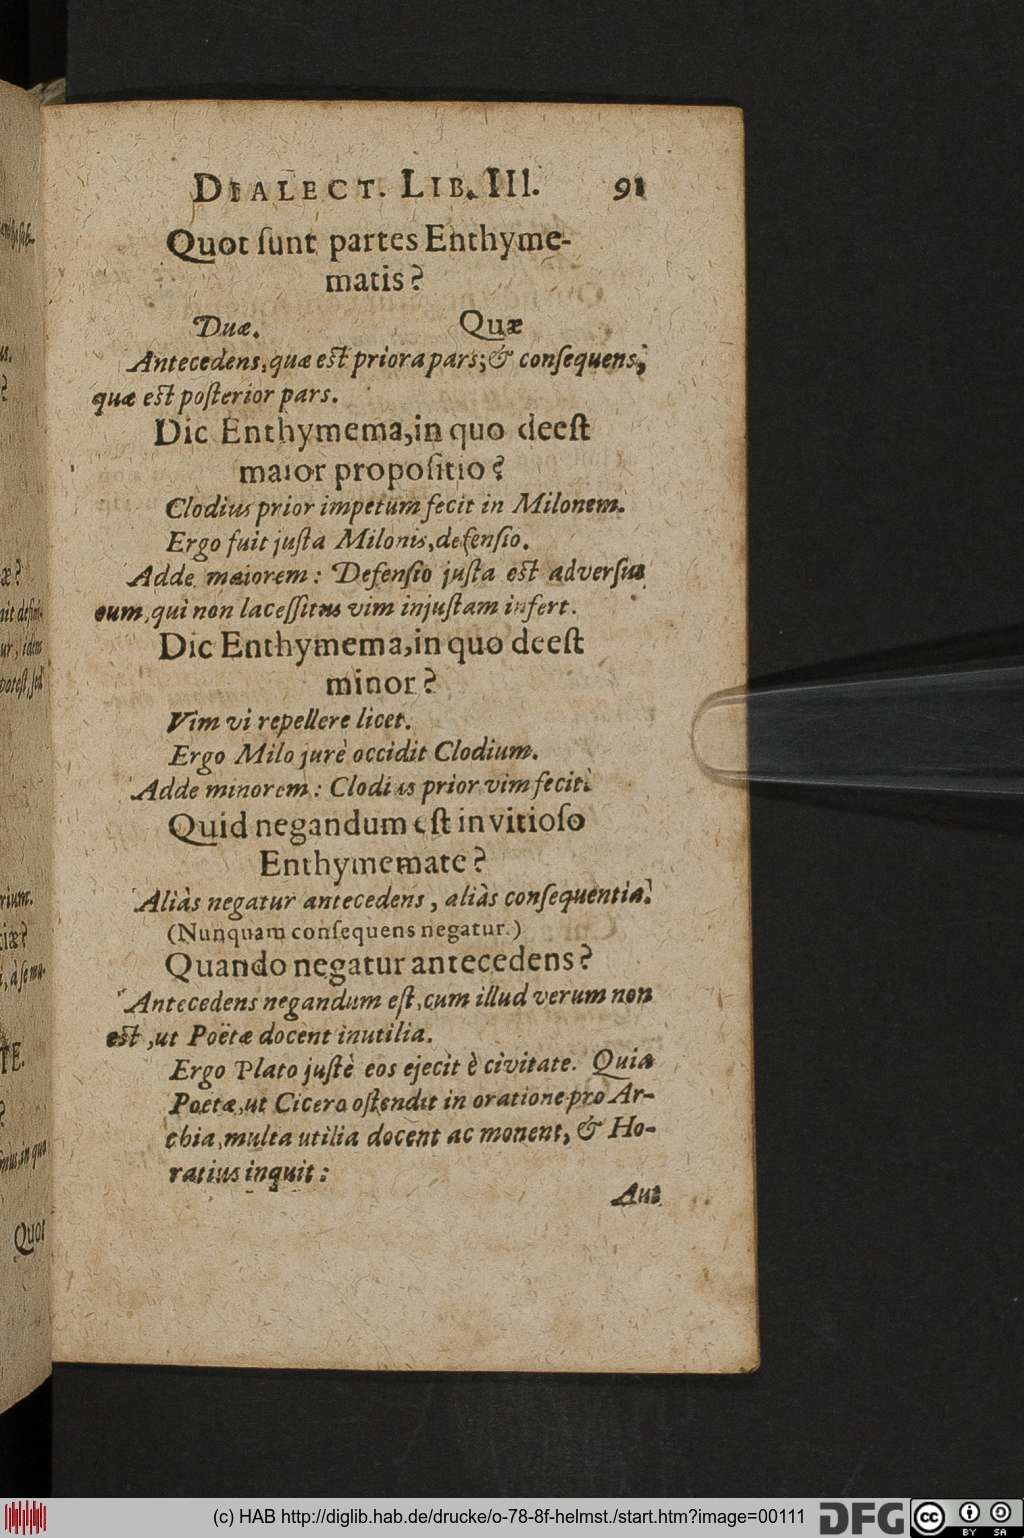 DIALECT. LIB. III. 91
Quot ſunt partes Enthyme-
matis?
Duæ. Quæ
Antecedens, quæ eſt prior a pars; & conſequens,
quæ eſt poſterior pars.
Dic Enthymema, in quo deeſt
maior propoſitio?
Clodius prior impetum fecit in Milonem.
Ergo fuit juſta Milonis, defenſio.
Adde maiorem: Defenſio juſta eſt adverſus
eum, qui non laceſſitus vim injuſtam infert.
Dic Enthymema, in quo deeſt
minor?
Vim vi repellere licet.
Ergo Milo jurè occidit Clodium.
Adde minorem: Clodius prior vim fecit.
Quid negandum eſt in vitioſo
Enthymemate?
Aliàs negatur antecedens, aliàs conſequentia.
(Nunquam conſequens negatur.)
Quando negatur antecedens?
Antecedens negandum eſt, cum illud verum non
eſt, ut Poëtæ docent inutilia.
Ergo Plato juſtè eos ejecit è civitate. Quia
Poetæ, ut Cicero oſtendit in oratione pro Ar-
chia, multa utilia docent ac monent, & Ho-
ratius inquit:
Aut
Quot
(c) HAB http://diglib.hab.de/drucke/o-78-8f-helmst./start.htm?image=00111
DFG
cc
BY SA